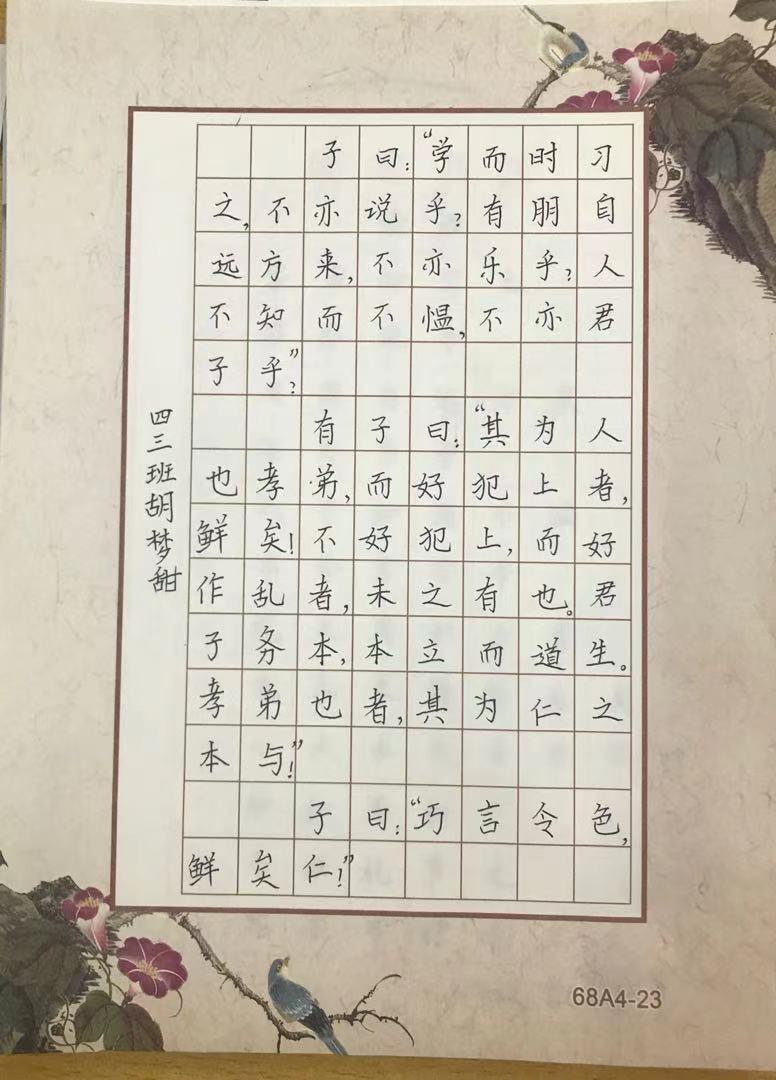 子曰：“学而时习
之，不亦说乎？有朋自
远方来，不亦乐乎？人
不知而不愠，不亦君
子乎？”
有子曰：“其为人
也孝弟，而好犯上者，
鲜矣！不好犯上，而好
作乱者，未之有也。君
子务本，本立而道生。
孝弟也者，其为仁之
本与！”
子曰：“巧言令色，
鲜矣仁！”
四三班胡梦甜
68A4-23